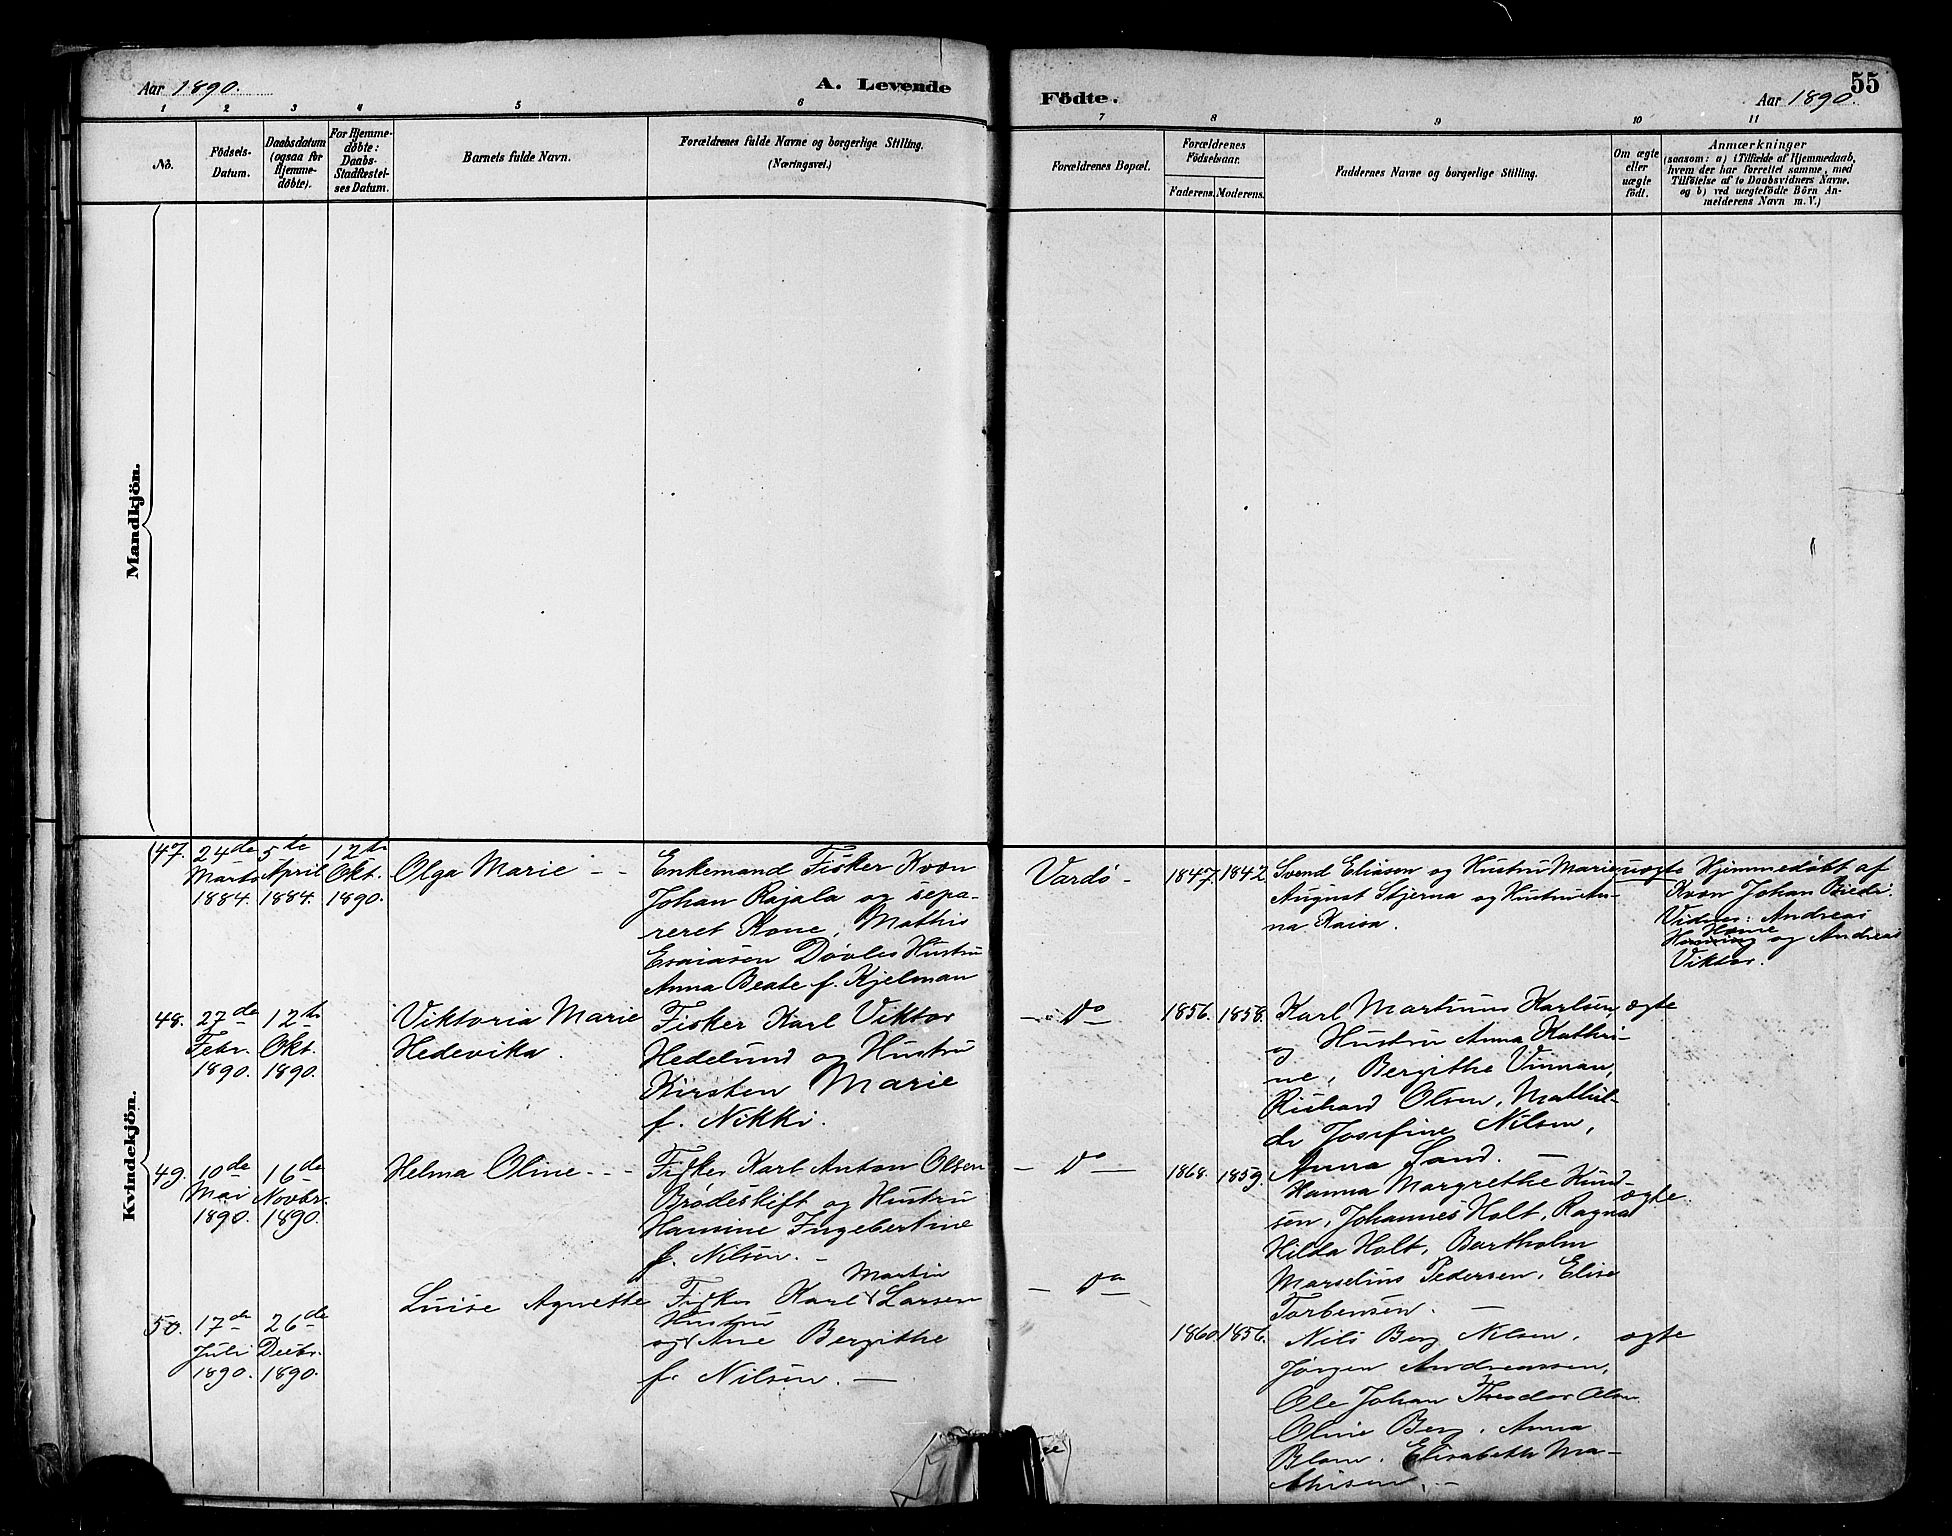 Aar 1890.
A. Levende
Födte.
Aar 1890.
55
1 2 3 4 5 6 7 8 9 10 11
No.
Födsels-
Datum.
Daabsdatum
(ogsaa for
Hjemme-
döbte).
For Hjemme-
döbte:
Daabs-
Stadfæstel-
ses Datum.
Barnets fulde Navn.
Forældrenes fulde Navne og borgerlige Stilling.
(Næringsvei.)
Forældrenes Bopæl.
Forældrenes
Födselsaar.
Faderens. Moderens.
Faddernes Navne og borgerlige Stilling.
Om ægte
eller
uægte
födt.
Anmærkninger
(saasom: a) i Tilfælde af Hjemmedaab,
hvem der har forrettet samme, med
Tilföielse af to Daabsvidners Navne.
og b) ved uægtefödte Börn An-
melderens Navn m. V.)
Mandkjön.
Kvindekjön.
47.
24de
Marts
1884.
5te
April
1884.
12te
Okt.
1890.
Olga Marie - -
Enkemand Fisker Kvæn
Johan Rajala og sepa-
reret Kone, Mathis
Esaiasen Døvles Hustru
Anna Beate f. Kjelman
Vardø -
1847. 1842
Svend Eliasen og Hustru Marie
August Stjerna og Hustru An-
na Kaisa.
uægte
Hjemmedøbt af
Kvæn Johan
Vidner: Andreas
og Andreas
Viktor.
48.
27de
Febr.
1890.
12te
Okt.
1890.
Viktoria Marie
Hedevika.
Fisker Karl Viktor
Hedelund og Hustru
Kirsten Marie
f. Nikki.
- Do -
1856. 1858.
Karl Martinus Karlsen
og Hustru Anna Kathri-
ne, Bergithe Vinnan,
Richard Olsen, Mathil-
de Josefine Nilsen,
Anna Sand. -
ægte
49.
10de
Mai
1890.
16de
Novbr.
1890.
Helma Oline - - -
Fisker Karl Anton Olsen
Brødeskift og Hustru
Hansine Ingebertine
f. Nilsen. -
- Do -
1868. 1859.
Hanna Margrethe Knud-
sen, Johannes Holt, Ragna
Hilda Holt, Bartholm
Marselius Pedersen, Elise
Torbensen. -
ægte
50.
17de
Juli
1890.
26de
Decbr.
1890.
Luise Agnette
Martin
Fisker Karl Larsen
Hustru
og Ane Bergithe
f. Nilsen. -
- Do -
1860. 1856.
Nils Berg Nilsen,
Jørgen Andreassen,
Ole Johan Theodor Olsen
Oline Berg, Anna
Blom, Elisabeth Ma-
thisen. -
ægte